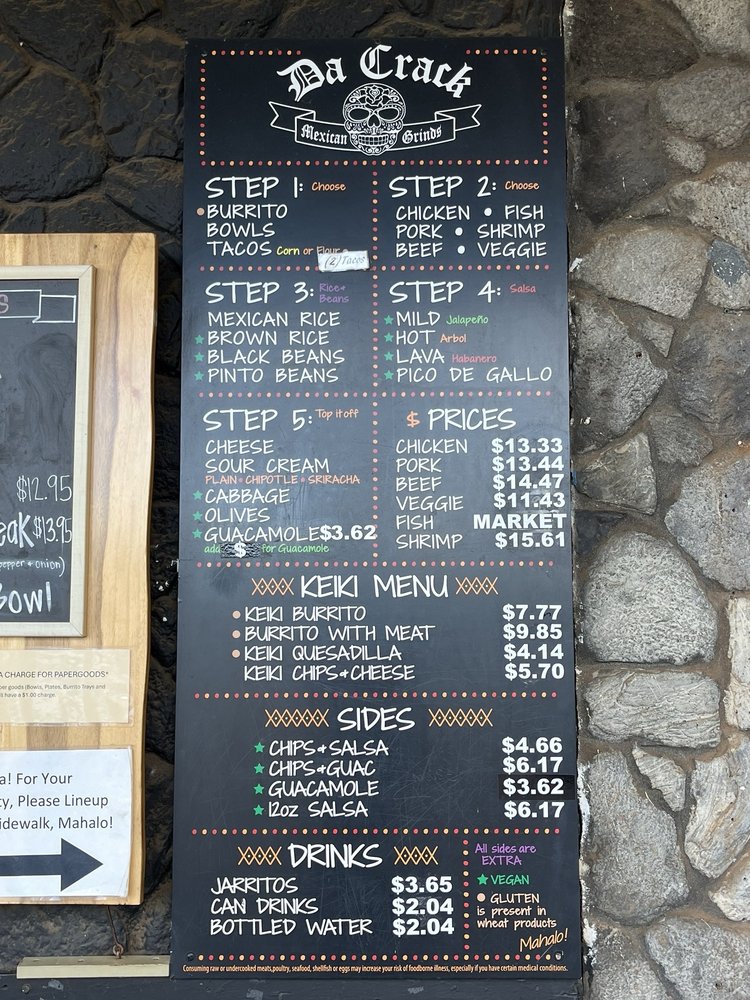 Da Crack
Mexican Grinds
STEP 1: Choose
BURRITO
BOWLS
TACOS Corn or Flour
(2) Tacos
STEP 2: Choose
CHICKEN • FISH
PORK • SHRIMP
BEEF • VEGGIE
STEP 3: Rice+
Beans
MEXICAN RICE
★ BROWN RICE
★ BLACK BEANS
★ PINTO BEANS
STEP 4: Salsa
★ MILD Jalapeño
★ HOT Arbol
★ LAVA Habanero
★ PICO DE GALLO
STEP 5: Top it off
CHEESE
SOUR CREAM
PLAIN • CHIPOTLE • SRIRACHA
★ CABBAGE
★ OLIVES
★ GUACAMOLE $3.62
add $ for Guacamole
$ PRICES
CHICKEN $13.33
PORK $13.44
BEEF $14.47
VEGGIE $11.43
FISH MARKET
SHRIMP $15.61
XXXX KEIKI MENU XXXX
• KEIKI BURRITO $7.77
• BURRITO WITH MEAT $9.85
• KEIKI QUESADILLA $4.14
KEIKI CHIPS+CHEESE $5.70
SIDES
★ CHIPS+SALSA $4.66
★ CHIPS+GUAC $6.17
★ GUACAMOLE $3.62
★ 12oz SALSA $6.17
DRINKS
JARRITOS $3.65
CAN DRINKS $2.04
BOTTLED WATER $2.04
All sides are
EXTRA
★ VEGAN
• GLUTEN
is present in
wheat products
Mahalo!
Consuming raw or undercooked meats, poultry, seafood, shellfish or eggs may increase your risk of foodborne illness, especially if you have certain medical conditions.
$12.95
$13.95
pepper + onion)
Bowl
A CHARGE FOR PAPERGOODS*
per goods (Bowls, Plates, Burrito Trays and
ll have a $1.00 charge.
a! For Your
ty, Please Lineup
idewalk, Mahalo!